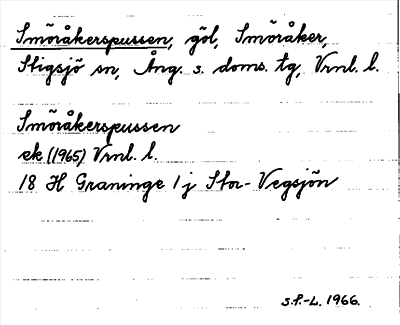 Smöråkerspussen, göl, Smöråker,
Stigsjö sn, Ång. s. doms. tg, Vrnl. l.
Smöråkerspussen
ek (1965) Vrnl. l.
18 H Graninge 1 j Stor-Vegsjön
S.P.-L. 1966.